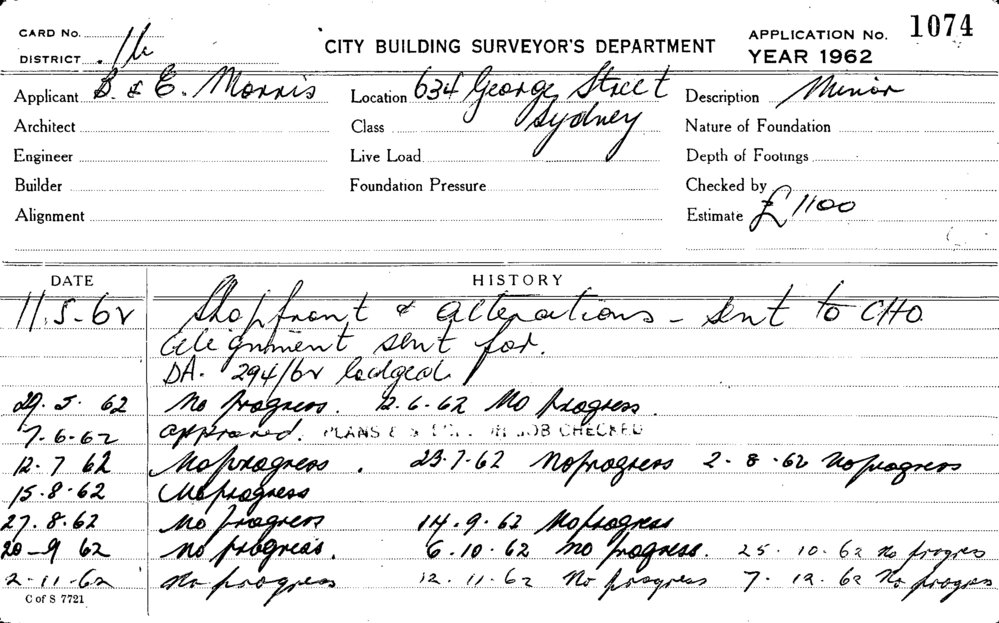 CARD No.
DISTRICT 1b
CITY BUILDING SURVEYOR'S DEPARTMENT
APPLICATION No. 1074
YEAR 1962
Applicant B. & E. Morris Location 634 George Street Description Minor
Architect Class Sydney Nature of Foundation
Engineer Live Load Depth of Footings
Builder Foundation Pressure Checked by
Alignment Estimate £1100
DATE HISTORY
11.5-62 Shopfront & alterations - sent to CHO.
Alignment sent for.
DA. 294/62 lodged
29.5.62 No progress. 12.6.62 No progress.
7-6-62 approved. PLANS & JOB CHECKED
12.7 62 No progress. 23.7.62 No progress 2.8.62 No progress
15.8.62 No progress
27.8.62 No progress 14.9.62 No progress
20-9 62 No progress. 6.10.62 No progress. 25.10.62 No progress
2-11-62 No progress 12.11.62 No progress 7.12.62 No progress
C of S 7721